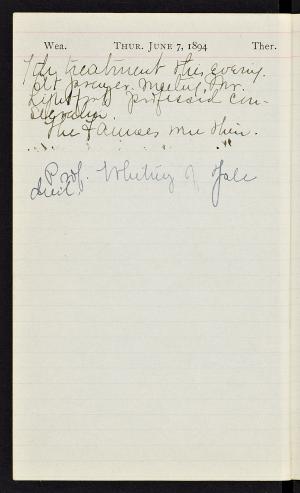 Wea. THUR. JUNE 7, 1894 Ther.
7th treatment this evening.
At prayer meeting, Mr.
professed con-
The Tainses were there.
Prof. Whitney of Yale
died.